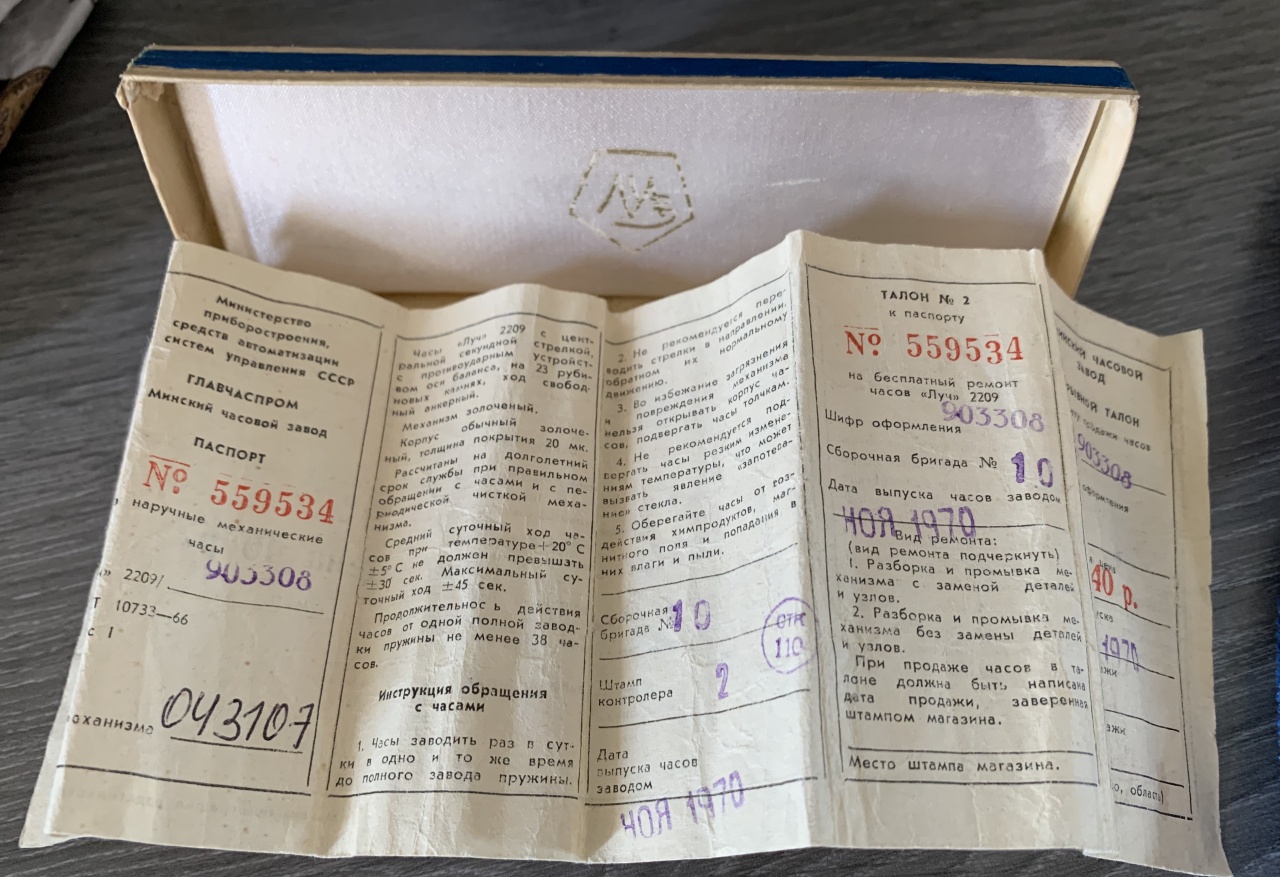 Луч
Министерство
приборостроения,
средств автоматизации
систем управления СССР
ГЛАВЧАСПРОМ
Минский часовой завод
ПАСПОРТ
№ 559534
наручные механические
часы
903308
» 2209/
Т 10733—66
с I
механизма 043107
Часы «Луч» 2209 с цент-
ральной секундной стрелкой,
с противоударным устройст-
вом оси баланса, на 23 руби-
новых камнях, ход свобод-
ный анкерный.
Механизм золоченый.
Корпус обычный золоче-
ный, толщина покрытия 20 мк.
Рассчитаны на долголетний
срок службы при правильном
обращении с часами и с пе-
риодической чисткой меха-
низма.
Средний суточный ход ча-
сов при температуре +20° С
±5° С не должен превышать
±30 сек. Максимальный су-
точный ход ±45 сек.
Продолжительнос ь действия
часов от одной полной завод-
ки пружины не менее 38 ча-
сов.
Инструкция обращения
с часами
1. Часы заводить раз в сут-
ки в одно и то же время
до полного завода пружины.
2. Не рекомендуется пере-
водить стрелки в направлении,
обратном их нормальному
движению.
3. Во избежание загрязнения
и повреждения механизма
нельзя открывать корпус ча-
сов, подвергать часы толчкам.
4. Не рекомендуется под-
вергать часы резким измене-
ниям температуры, что может
вызвать явление «запотева-
ние» стекла.
5. Оберегайте часы от воз-
действия химпродуктов, маг-
нитного поля и попадания в
них влаги и пыли.
Сборочная
бригада № 10
ОТК
110
Штамп
контролера 2
Дата
выпуска часов
заводом
НОЯ 1970
ТАЛОН № 2
к паспорту
№ 559534
на бесплатный ремонт
часов «Луч» 2209
Шифр оформления 903308
Сборочная бригада № 10
Дата выпуска часов заводом
НОЯ 1970
Вид ремонта:
(вид ремонта подчеркнуть)
1. Разборка и промывка ме-
ханизма с заменой деталей
и узлов.
2. Разборка и промывка ме-
ханизма без замены деталей
и узлов.
При продаже часов в та-
лоне должна быть написана
дата продажи, заверенная
штампом магазина.
Место штампа магазина.
ИНСКИЙ ЧАСОВОЙ
ЗАВОД
РЫВНОЙ ТАЛОН
продажи часов
903308
оформления
цена
40 р.
уска
1970
жи
ажи
о, область)